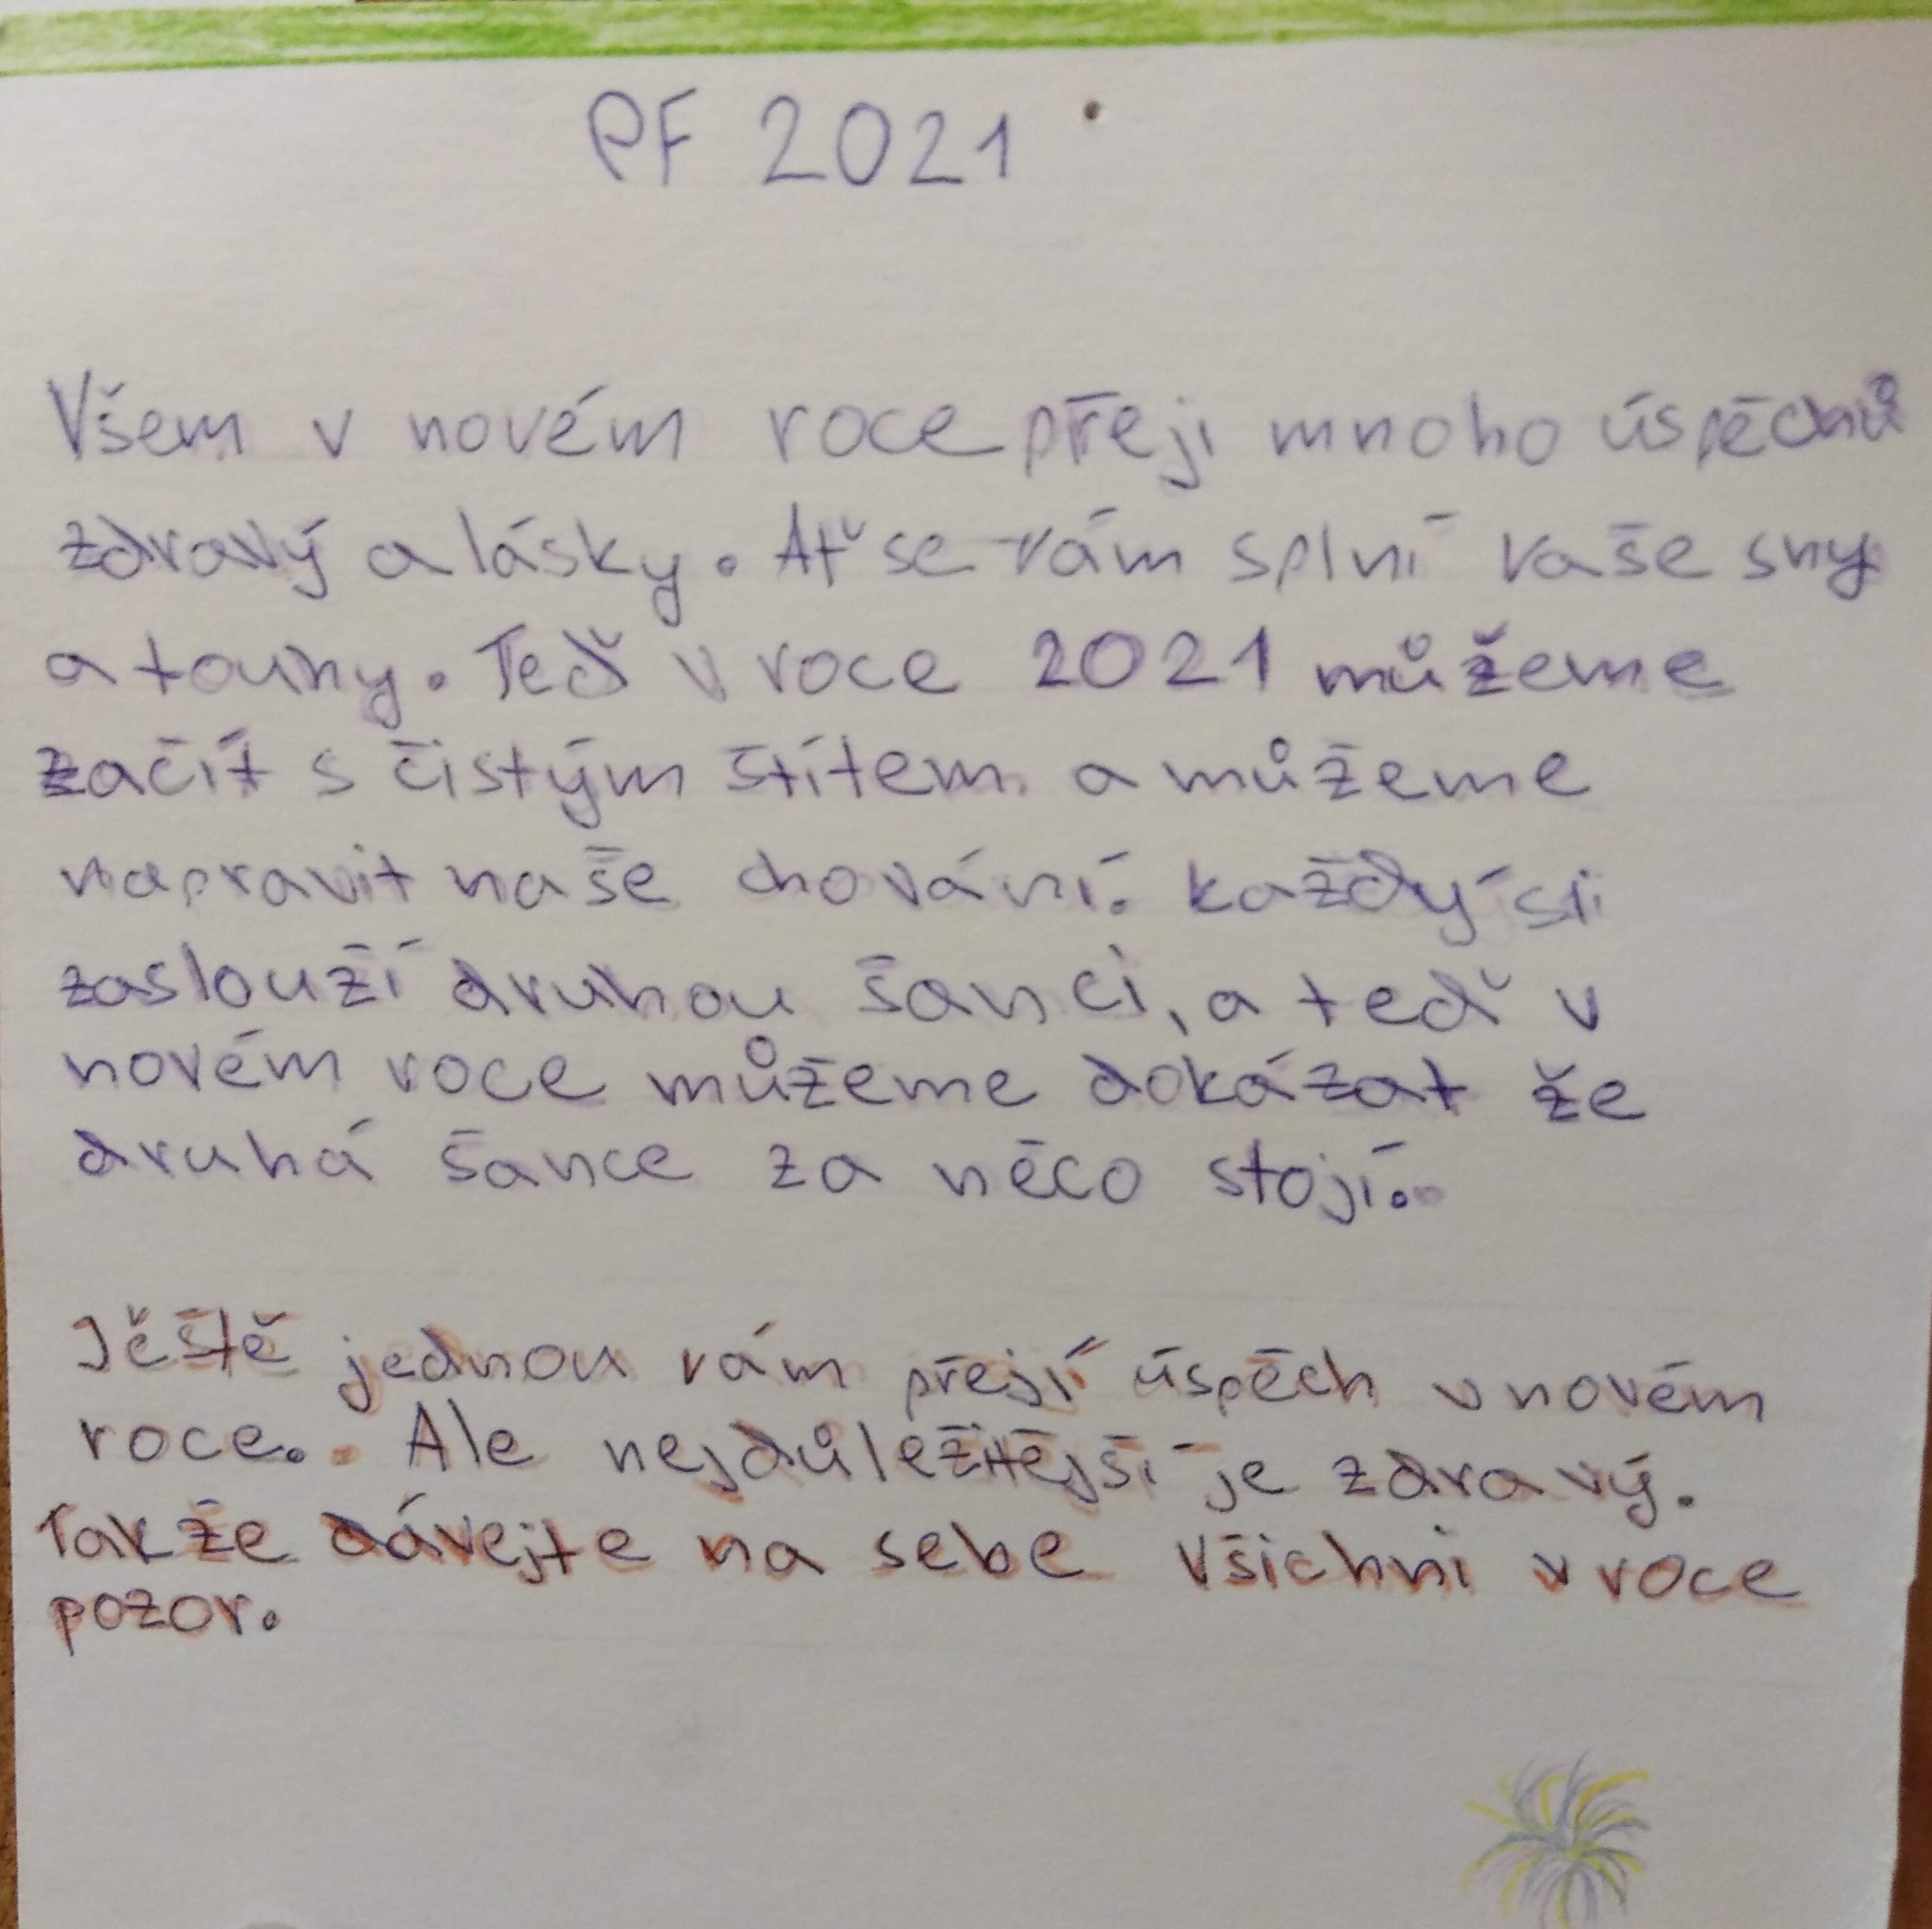 PF 2021
Všem v novém roce přeji mnoho úspěchů
zdravý a lásky. Ať se vám splní vaše sny
a touhy. Teď v roce 2021 můžeme
začít s čistým štítem a můžeme
napravit naše chování. každý si
zaslouží druhou šanci, a teď v
novém roce můžeme dokázat že
druhá šance za něco stojí.
Jěště jednou vám přejí úspěch v novém
roce. Ale nejdůležitější je zdravý.
Takže dávejte na sebe všichni v roce
pozor.